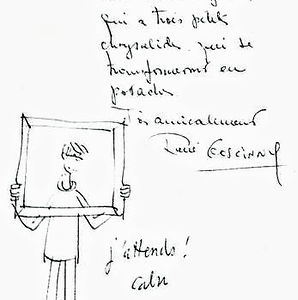 qui a trois petits
chrysalides qui se
transformeront en
Très amicalement
René Goscinny
j'attends!